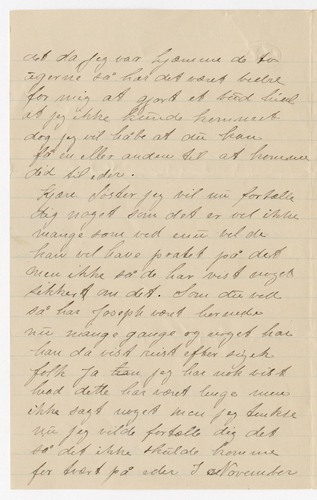 det da jeg var hjemme de to
ögerne så har det været bedre
for mig at gjort et
at jeg ikke kunde kommet
dog jeg vil håbe at du kan
få en eller anden til at komme
did til eder.
Kjære Söster jeg vil nu fortælle
dig noget som det er vel ikke
mange som ved enu vel de
kan vel have pratet på det
men ikke så de har vist noget
sikkert om det. Som du ved
så har Joseph vært herinde
nu mange gange og noget har
han da vist reist efter
folk Ja han jeg har nok vist
hvad dette har været lenge men
ikke sagt noget men jeg tenkte
nu jeg vilde fortælle dig det
så det ikke skulde komme
for tvært på eder I November